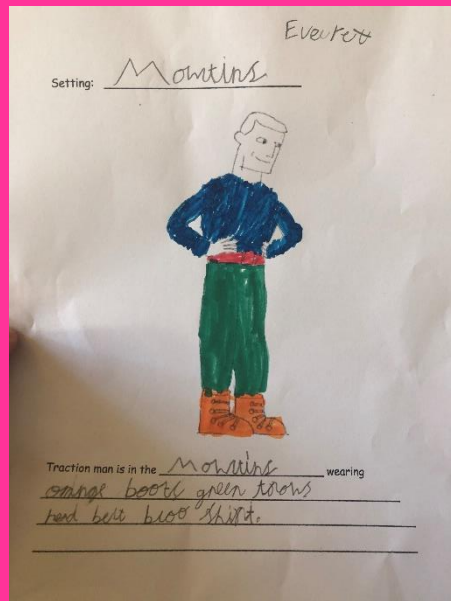 Everett
Setting: Mowtins
Traction man is in the Mowtins wearing
orange boots green trows
red belt bloo shirt.